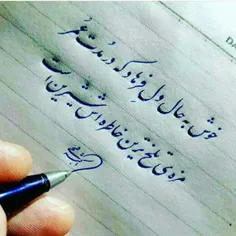 خوش به حال دل فرهاد که در مدت عمر
مزه ی تلخ ترین خاطره اش شیرین است
DA